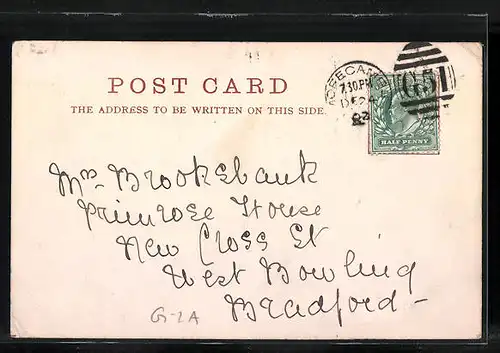 POST CARD
THE ADDRESS TO BE WRITTEN ON THIS SIDE.
MORECAMBE
7.30 PM
DE 24
G51
HALF PENNY
Mrs Brooksbank
Primrose House
New Cross St
West Bowling
Bradford -
G-2A